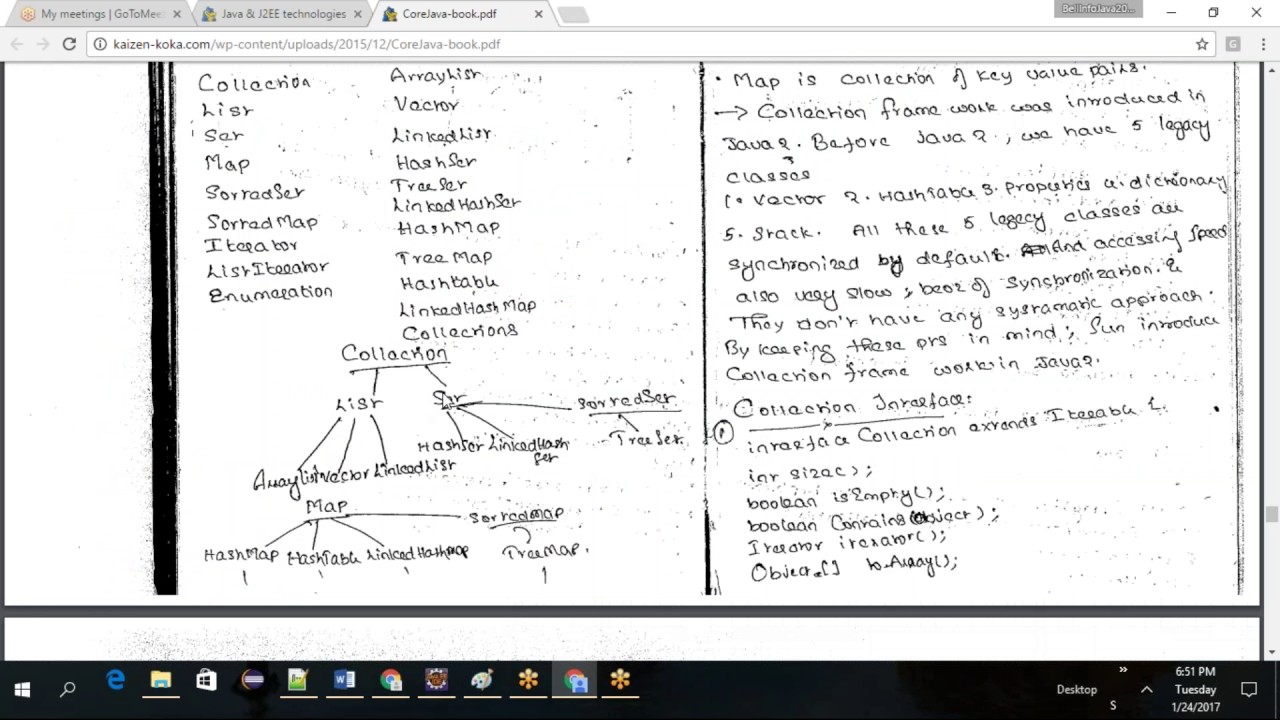 My meetings | GoToMee
Java & J2EE technologies
CoreJava-book.pdf
BellInfoJava20...
kaizen-koka.com/wp-content/uploads/2015/12/CoreJava-book.pdf
Collection
List
Set
Map
SortedSet
SortedMap
Iterator
ListIterator
Enumeration
ArrayList
Vector
LinkedList
HashSet
TreeSet
LinkedHashSet
HashMap
TreeMap
Hashtable
LinkedHashMap
Collections
Collection
List Set SortedSet
HashSet LinkedHash Set TreeSet
ArrayList Vector LinkedList
Map
SortedMap
HashMap HashTable LinkedHashMap TreeMap.
• Map is collection of key value pairs.
→ Collection frame work was introduced in
Java 2. Before Java 2, we have 5 legacy
classes
1. Vector 2. Hashtable 3. Properties 4. dictionary
5. Stack. All these 5 legacy classes are
synchronized by default. And accessing speed
also very slow, becz of synchronization. &
They don't have any systamatic approach.
By keeping these pts in mind, Sun introduce
Collection frame work in Java2.
① Collection Interface:
interface Collection extends Iterable {
int size();
boolean isEmpty();
boolean Contains(Object);
Iterator iterator();
Object[] toArray();
Desktop
6:51 PM
Tuesday
1/24/2017
S